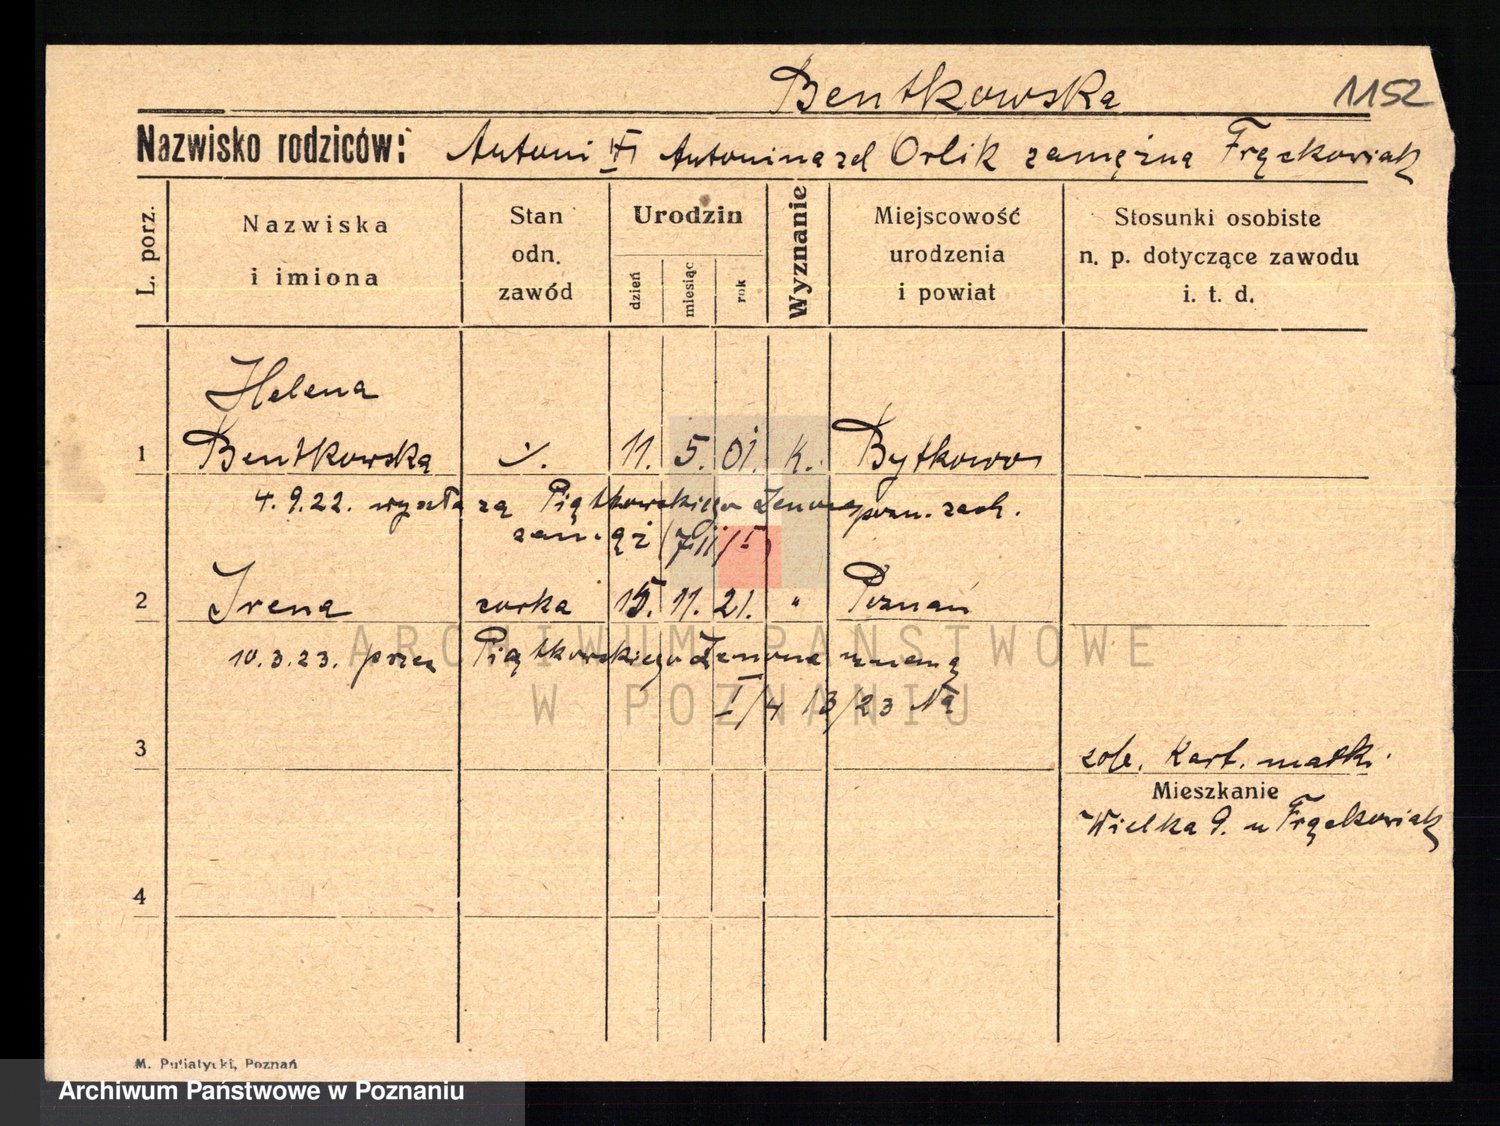 Bentkowska 1152
Nazwisko rodziców: Antoni Antonina zd Orlik zamężna Frąckowiak
L. porz.
Nazwiska
i imiona
Stan
odn.
zawód
Urodzin
dzień
miesiąc
rok
Wyznanie
Miejscowość
urodzenia
i powiat
Stosunki osobiste
n. p. dotyczące zawodu
i. t. d.
Helena
1 Bentkowska 11. 5. 01. k. Bytkowo
4.9.22. wyszła za Piątkowskiego Zenona pozn. zach.
zam.
2 Irena corka 15. 11. 21. " Poznań
10.3.23. przez Piątkowskiego Zenona uznaną
I/4 13/23 Na
3
zob. Kart. matki.
Mieszkanie
Wielka 9. u Frąckowiak
4
M. Putiatycki, Poznań
ARCHIWUM PAŃSTWOWE
W POZNANIU
Archiwum Państwowe w Poznaniu